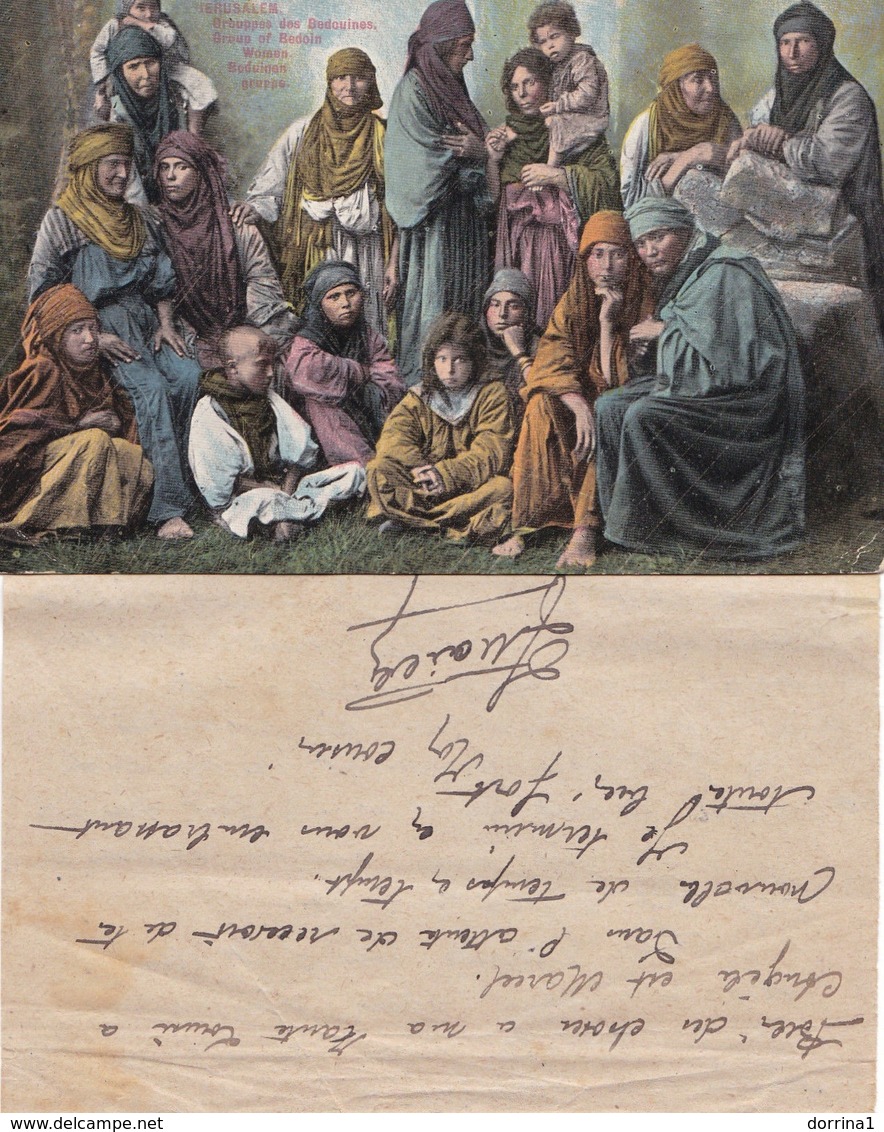 JERUSALEM.
Grouppes des Bedouines.
Group of Bedoin
Women
Beduinen
gruppe.
Bien des choses a ma tante Louise a
Angèle est Marcel.
Dans l'attente de recevoir de te
nouvelle de temps en temps.
Je termine en vous embrassant
toute bien fort
Ton cousin
dorrina1